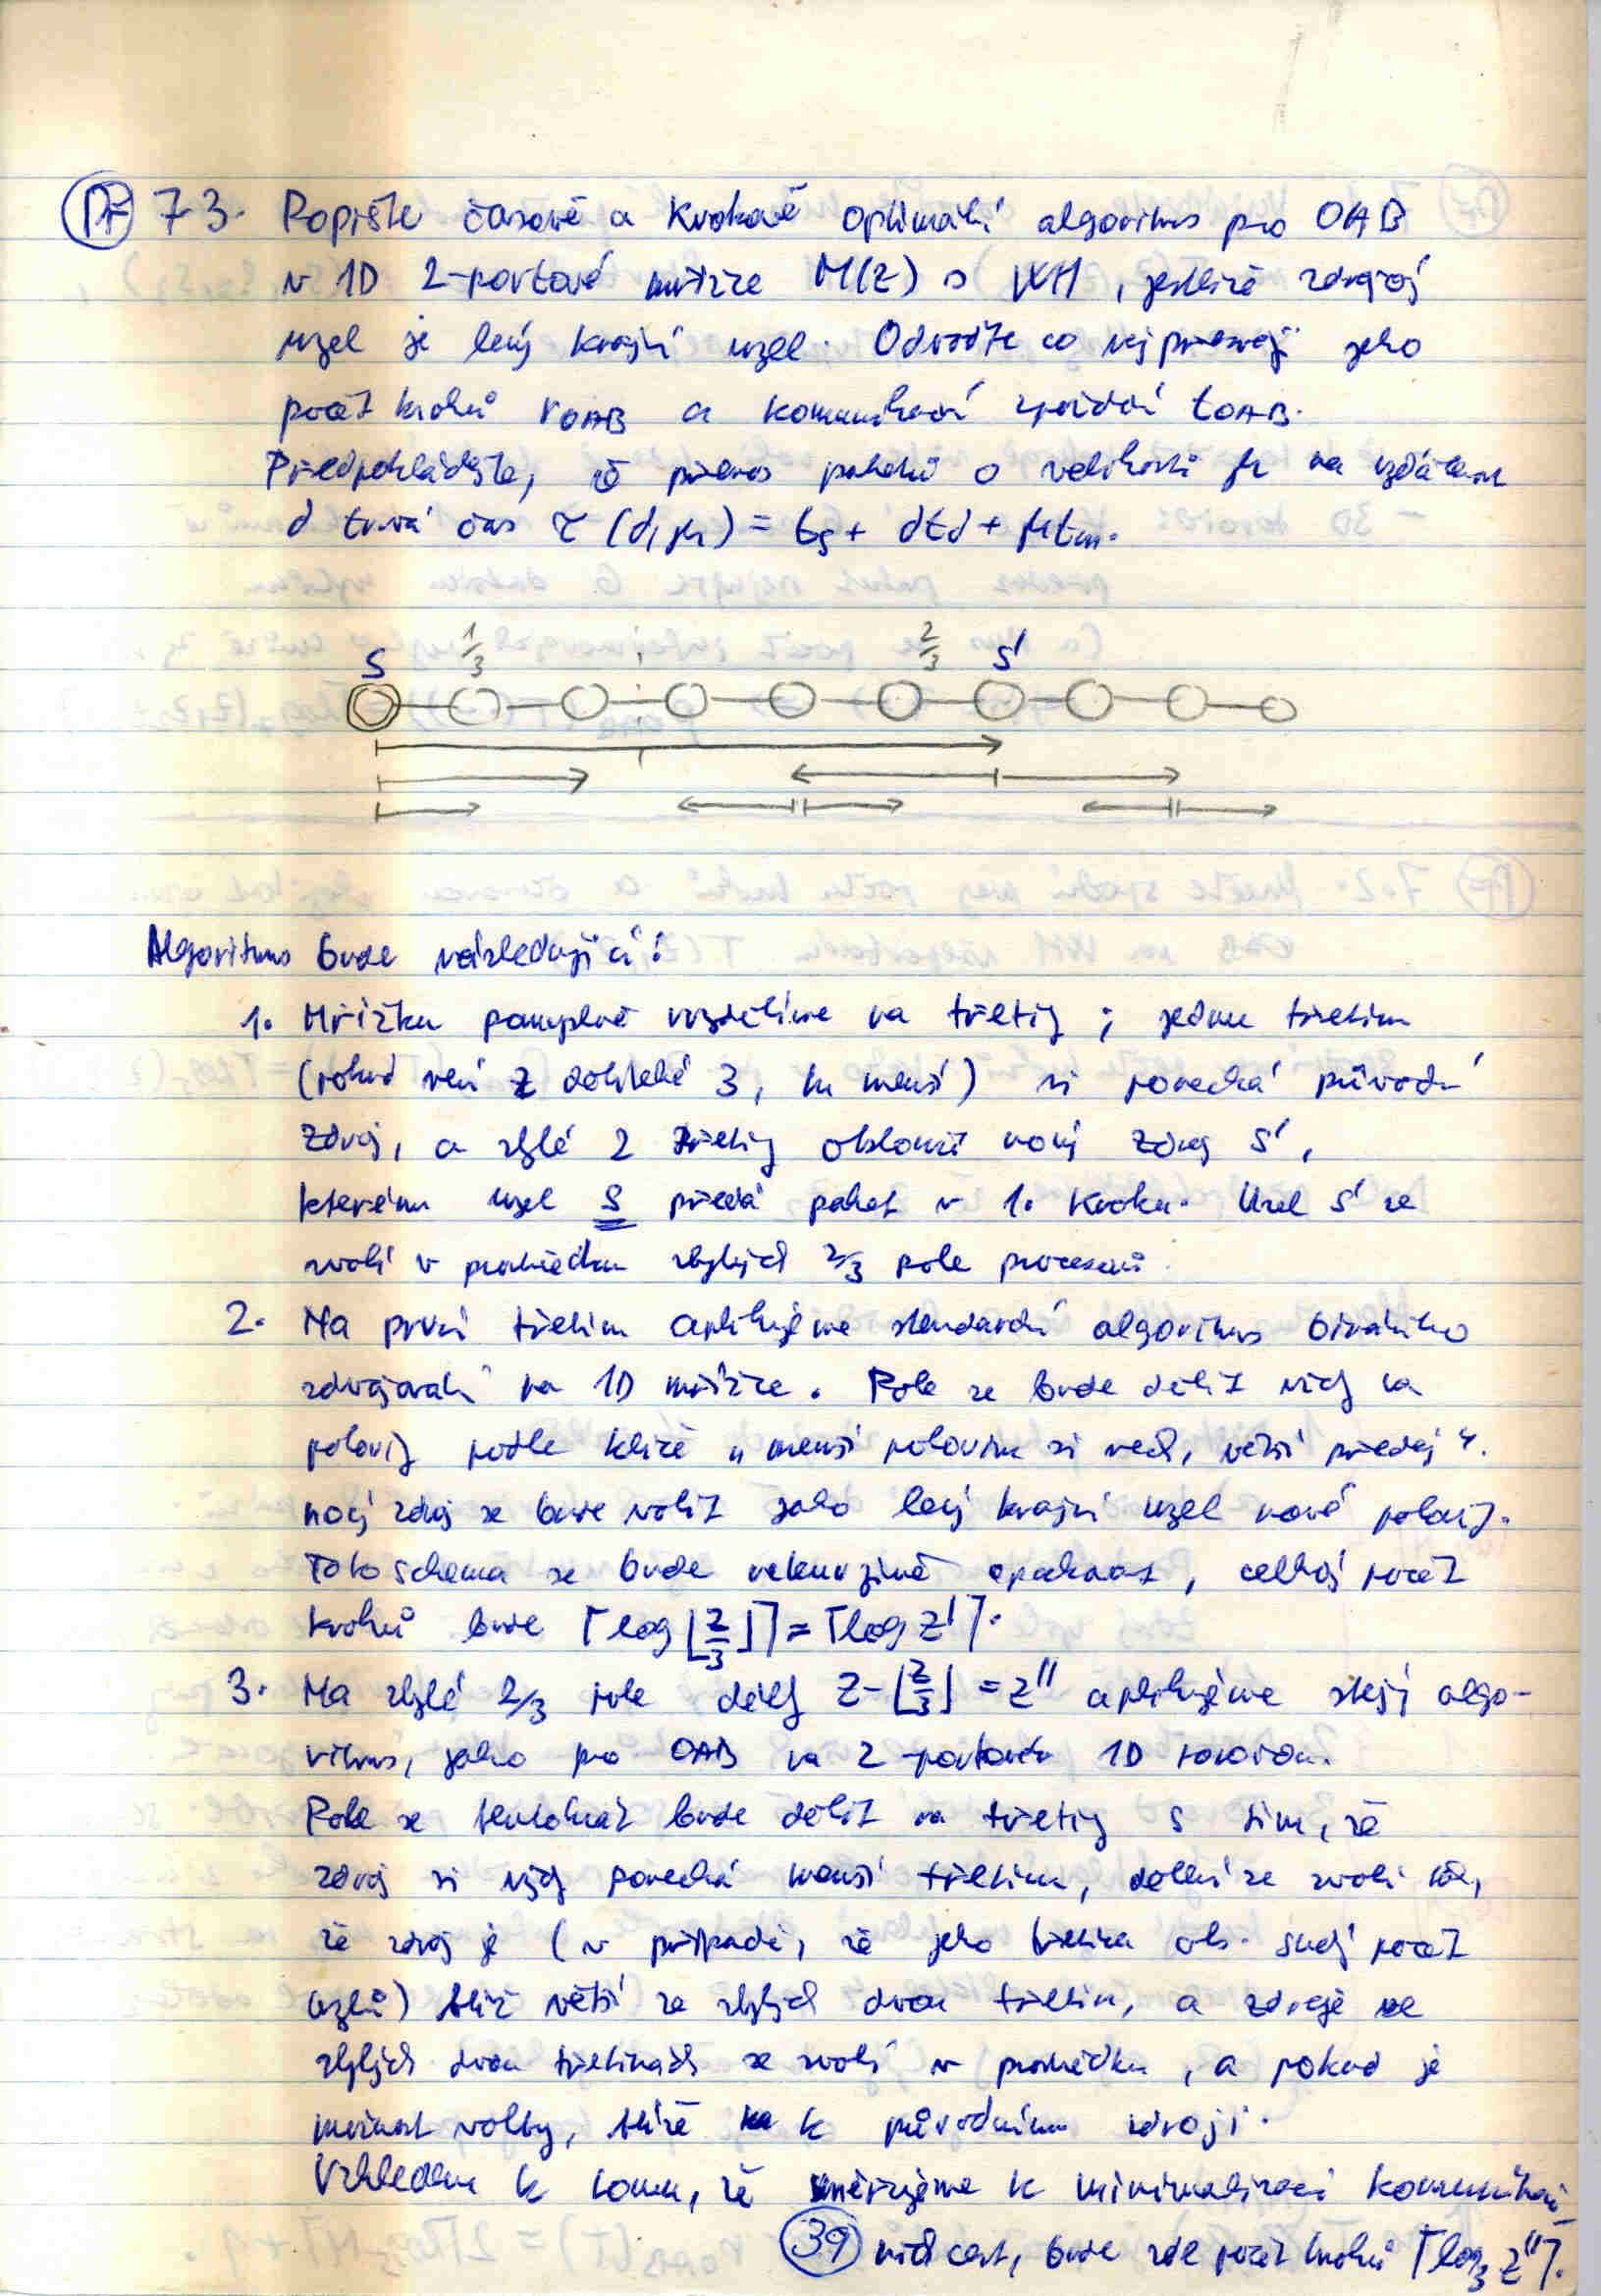 Př 7.3. Popište časově a krokově optimální algoritmus pro OAB
v 1D 2-portové mřížce M(z) s WH, jestliže zdrojový
uzel je levý krajní uzel. Odvoďte co nejpřesněji jeho
počet kroků r_OAB a komunikační zpoždění t_OAB.
Předpokládejte, že přenos paketů o velikosti μ na vzdálenost
d trvá čas τ(d,μ) = t_s + d t_d + μ t_m.
S 1/3 2/3 S'
Algoritmus bude následující:
1. Mřížku pomyslně rozdělíme na třetiny; jednu třetinu
(pokud není z dělitelné 3, tu menší) si ponechá původní
zdroj, a zbylé 2 třetiny obslouží nový zdroj S',
kterému uzel S předá paket v 1. kroku. Uzel S' se
volí v prostředku zbylých 2/3 pole procesorů.
2. Na první třetinu aplikujeme standardní algoritmus binárního
zdvojování na 1D mřížce. Pole se bude dělit vždy na
poloviny podle klíče "menší polovinu si nech, větší předej".
nový zdroj se bude volit jako levý krajní uzel nové poloviny.
Toto schema se bude rekurzivně opakovat, celkový počet
kroků bude ⌈log ⌊z/3⌋⌉ = ⌈log z'⌉.
3. Na zbylé 2/3 pole délky z - ⌊z/3⌋ = z'' aplikujeme stejný algo-
ritmus, jako pro OAB na 2-portovém 1D toroidu.
Pole se tentokrát bude dělit na třetiny s tím, že
zdroj si vždy ponechá menší třetinu, dělení se volí tak,
že zdroj je (v případě, že jeho třetina obs. sudý počet
uzlů) blíž větší ze zbylých dvou třetin, a zdroje ve
zbylých dvou třetinách se volí v prostředku, a pokud je
možnost volby, blíže k původnímu zdroji.
Vzhledem k tomu, že směřujeme k minimalizaci komunikační
vzdálenosti, bude zde počet kroků ⌈log₃ z''⌉.
39